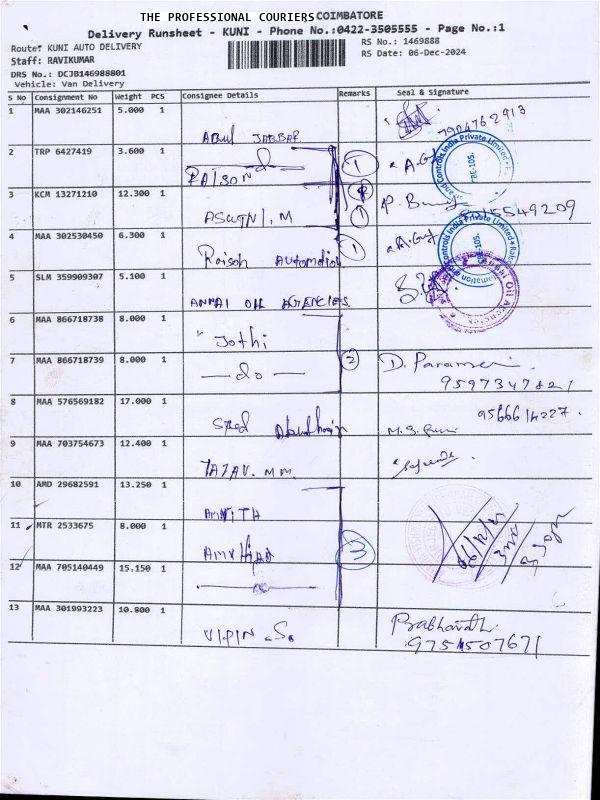 THE PROFESSIONAL COURIERS COIMBATORE
Delivery Runsheet - KUNI - Phone No.:0422-3505555 - Page No.:1
Route: KUNI AUTO DELIVERY
RS No.: 1469888
Staff: RAVIKUMAR
RS Date: 06-Dec-2024
DRS No.: DCJB146988801
Vehicle: Van Delivery
S No Consignment No Weight PCS Consignee Details Remarks Seal & Signature
1 MAA 302146251 5.000 1
Abul JABBAR 7904762913
2 TRP 6427419 3.600 1
RAISON 1
3 KCM 13271210 12.300 1
ASWINI, M
4 MAA 302530450 6.300 1
Raison Automation 1
5 SLM 359909307 5.100 1
ANNAI OIL AGENCIES
6 MAA 866718738 8.000 1
" Jothi
7 MAA 866718739 8.000 1
— do — 2 D. Parameri
9597347821
8 MAA 576569182 17.000 1
Syed 9566614227.
9 MAA 703754673 12.400 1
TAJAV. M M
10 AMD 29682591 13.250 1
AMRITA
11 MTR 2533675 8.000 1
3
12 MAA 705140449 15.150 1
— do —
13 MAA 301993223 10.800 1
VIPIN .S. Prabharath
9751507671